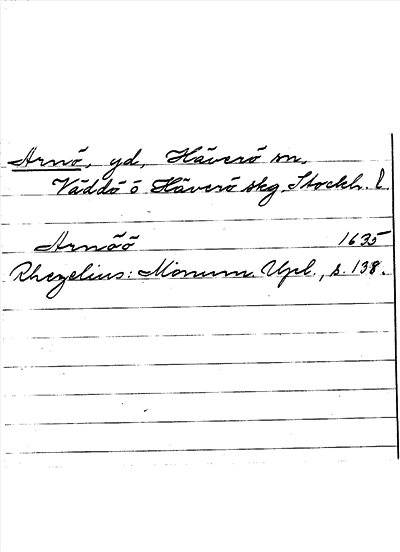 Arnö, yd, Häverö sn,
Väddö ö Häverö skg Stockh. l.
Arnöö 1635
Rhezelius: Monum. Upl., s. 138.